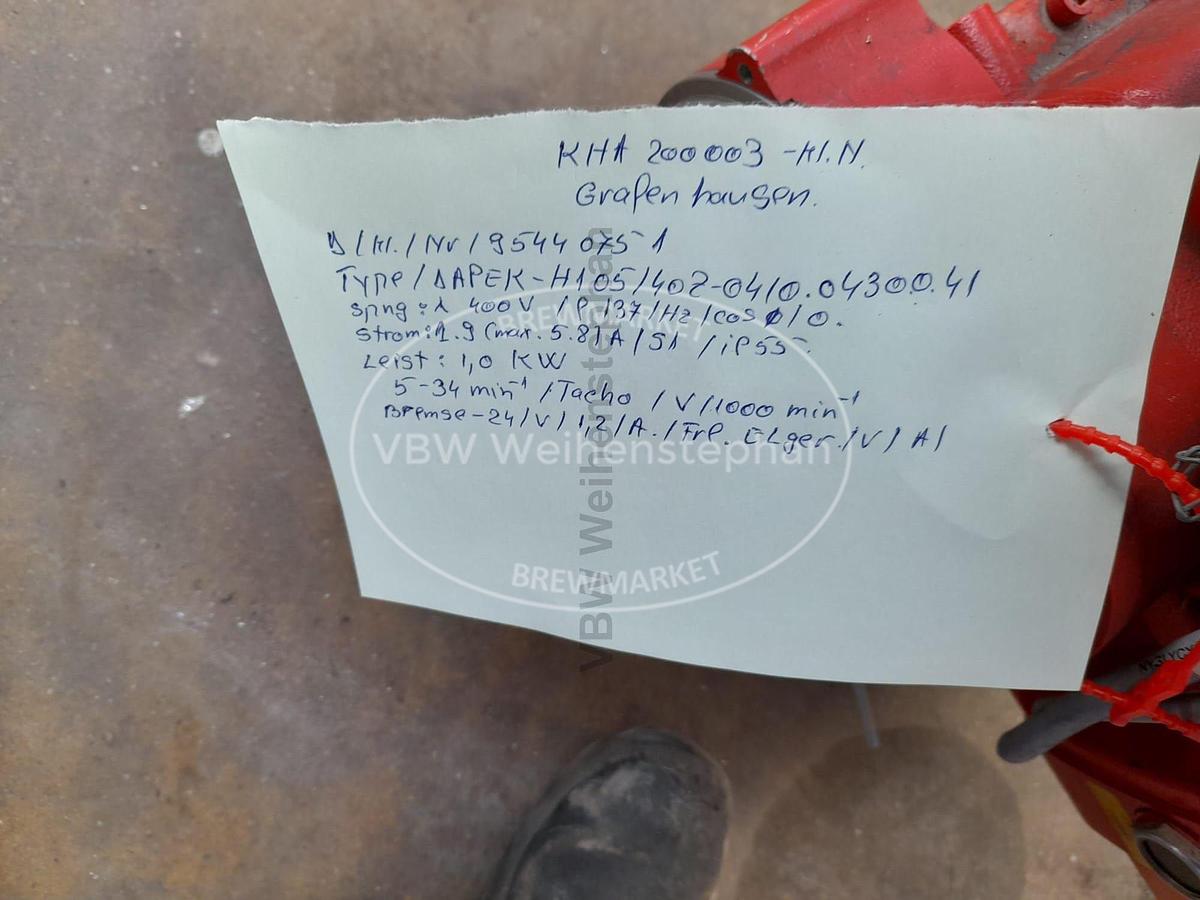 KHA 200003 -Kl.N.
Grafenhausen.
D/Kl./Nr/9544075 1
Type/DAPEK-H105/402-04/0.04300.41
spng: λ 400V /P 137/Hz/cos φ/0.
Strom:1.9 (max. 5.8) A/S1 /iP55.
Leist: 1,0 KW
5-34 min⁻¹ /Tacho /V/1000 min⁻¹
Bremse-24/V/1,2/A./Frl. ELger./V/ A/
BREWMARKET
VBW Weihenstephan
BREWMARKET
VBW Weihenstephan